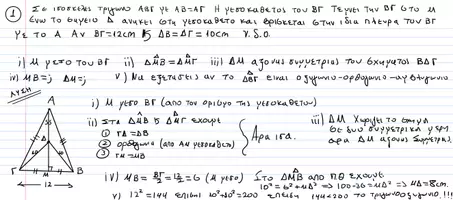 ① Σε ισοσκελές τρίγωνο ΑΒΓ με ΑΒ=ΑΓ Η μεσοκάθετος του ΒΓ τέμνει την ΒΓ στο Μ
ένω το σημείο Δ ανήκει στη μεσοκάθετο και βρίσκεται στην ίδια πλευρά του ΒΓ
με το Α Αν ΒΓ=12cm ΔΒ=ΔΓ=10cm ν.δ.ο.
i) Μ μέσο του ΒΓ ii) ΔΜΒ=ΔΜΓ iii) ΔΜ άξονας συμμετρίας του σχήματος ΒΔΓ
iv) ΜΒ=; ΔΜ=; v) Να εξετάσεις αν το ΔΒΓ είναι οξυγώνιο-ορθογώνιο-αμβλυγώνιο
ΛΥΣΗ
i) Μ μέσο ΒΓ (από τον ορισμό της μεσοκαθέτου)
ii) Στα ΔΜΒ ΔΜΓ έχουμε
① ΓΔ=ΔΒ
② ορθογώνια (από ΑΜ μεσοκάθετο)
③ ΓΜ=ΜΒ
Άρα ίσα.
iii) ΔΜ χωρίζει το σχήμα
σε δυο συμμετρικά μέρη
άρα ΔΜ άξονας συμμετρίας.
Α
Δ
10 10
Γ 6 Μ 6 Β
12
iv) ΜΒ = ΒΓ/2 = 12/2 = 6 (Μ μέσο) Στο ΔΜΒ από πθ έχουμε
10²=6²+ΜΔ² ⇒ 100-36=ΜΔ² ⇒ ΜΔ=8cm.
v) 12²=144 επίσης 10²+10²=200 επειδή 144<200 το τρίγωνο οξυγώνιο!!!